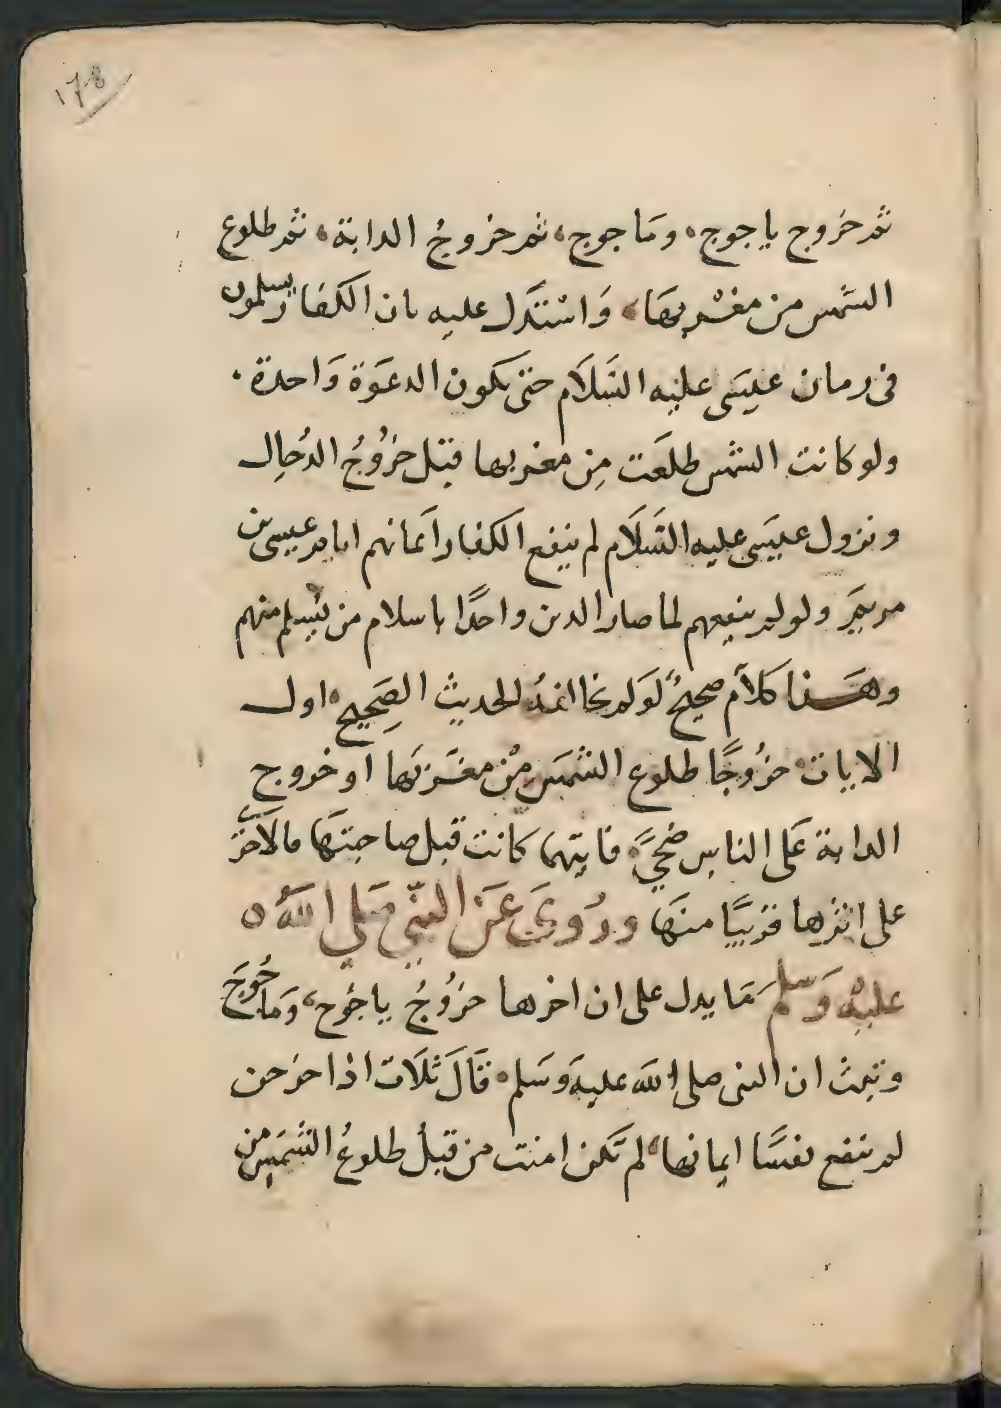 ١٧٨
ثم خروج ياجوج، وماجوج، ثم خروجُ الدابة، ثم طلوع
الشمس من مغربها، وَاسْتَدل عليه بان الكفار يسلمون
فى زمان عيسَى عليه السَلَام حتى تكون الدعوَة وَاحدة.
ولو كانت الشمس طلعَت مِن مغربها قبل خرُوُجُ الدُجال
ونزول عيسَى عليه السَلَام لم ينفع الكفار ايمانهم ايام عيسى بن
مريمَ ولو لم ينفعهم لما صار الدين واحدًا باسلام من يُسلم منهم
وهَذا كلام صحيحٌ لوَ لم الحديث الصَحِيح، اول
الايات خرُوجًا طلوع الشمسَ مِنْ مغرَبها او خروج
الدابة عَلى الناس ضُحىً، فايتهما كانت قبل صاحبتهَا فالآخرَى
على اثرها قريبًا منهَا ورُوِىَ عَن النبّى صَلى اللهُ
عليهْ وَسلم مَا يدل على ان اخرها خرُوُجُ ياجُوج، وَماجُوجَ
وثبت ان النبى صلى الله عليهَ وَسَلم، قَالَ ثلَاث اذا خرجن
لم ينفع نفسًا ايمانها، لم تَكن امنت من قبلُ طلوعُ الشَمسِ من